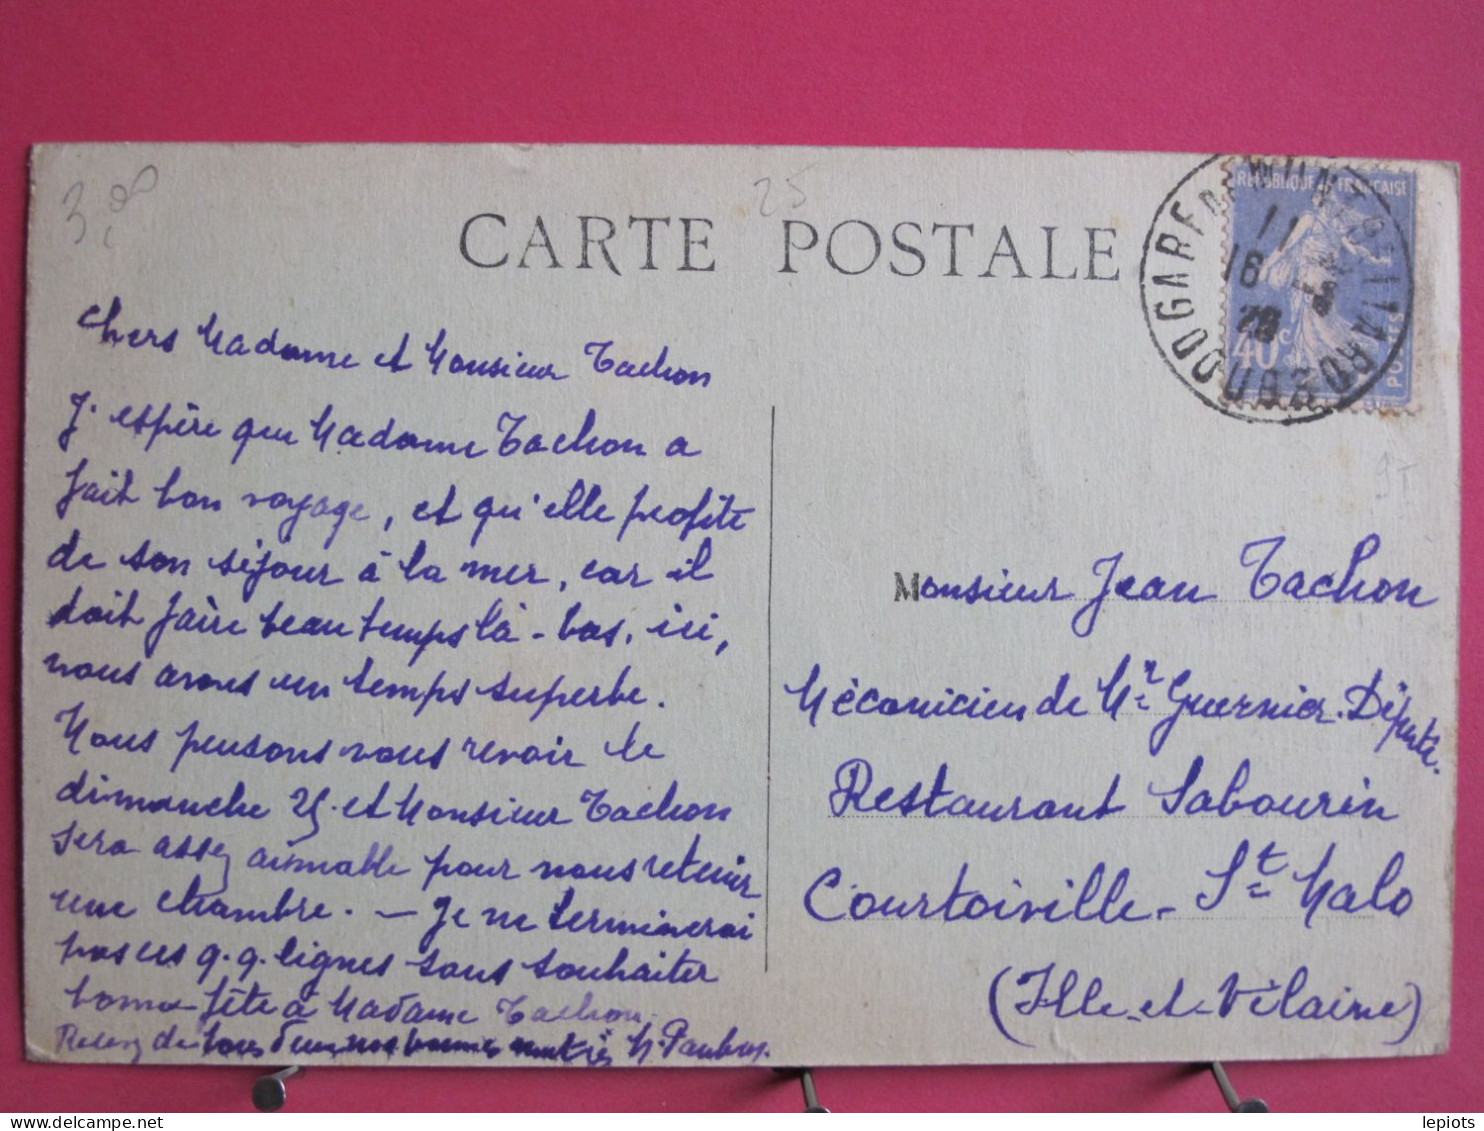 3,
25
CARTE POSTALE
REPUBLIQUE FRANÇAISE
11
16
28
40c
POSTES
GARE
Chers Madame et Monsieur Tachon
J'espère que Madame Tachon a
fait bon voyage, et qu'elle profite
de son séjour à la mer, car il
doit faire beau temps là-bas, ici,
nous avons un temps superbe.
Nous pensons vous revoir le
dimanche 25. et Monsieur Tachon
sera assez aimable pour nous retenir
une chambre. - Je ne terminerai
pas ces q.q. lignes sans souhaiter
bonne fête à Madame Tachon.
de tous deux nos
Monsieur Jean Tachon
Mécanicien de Mr Guernier. Député.
Restaurant Sabourin
Courtoiville - St Malo
(Ille-et-Vilaine)
lepiots